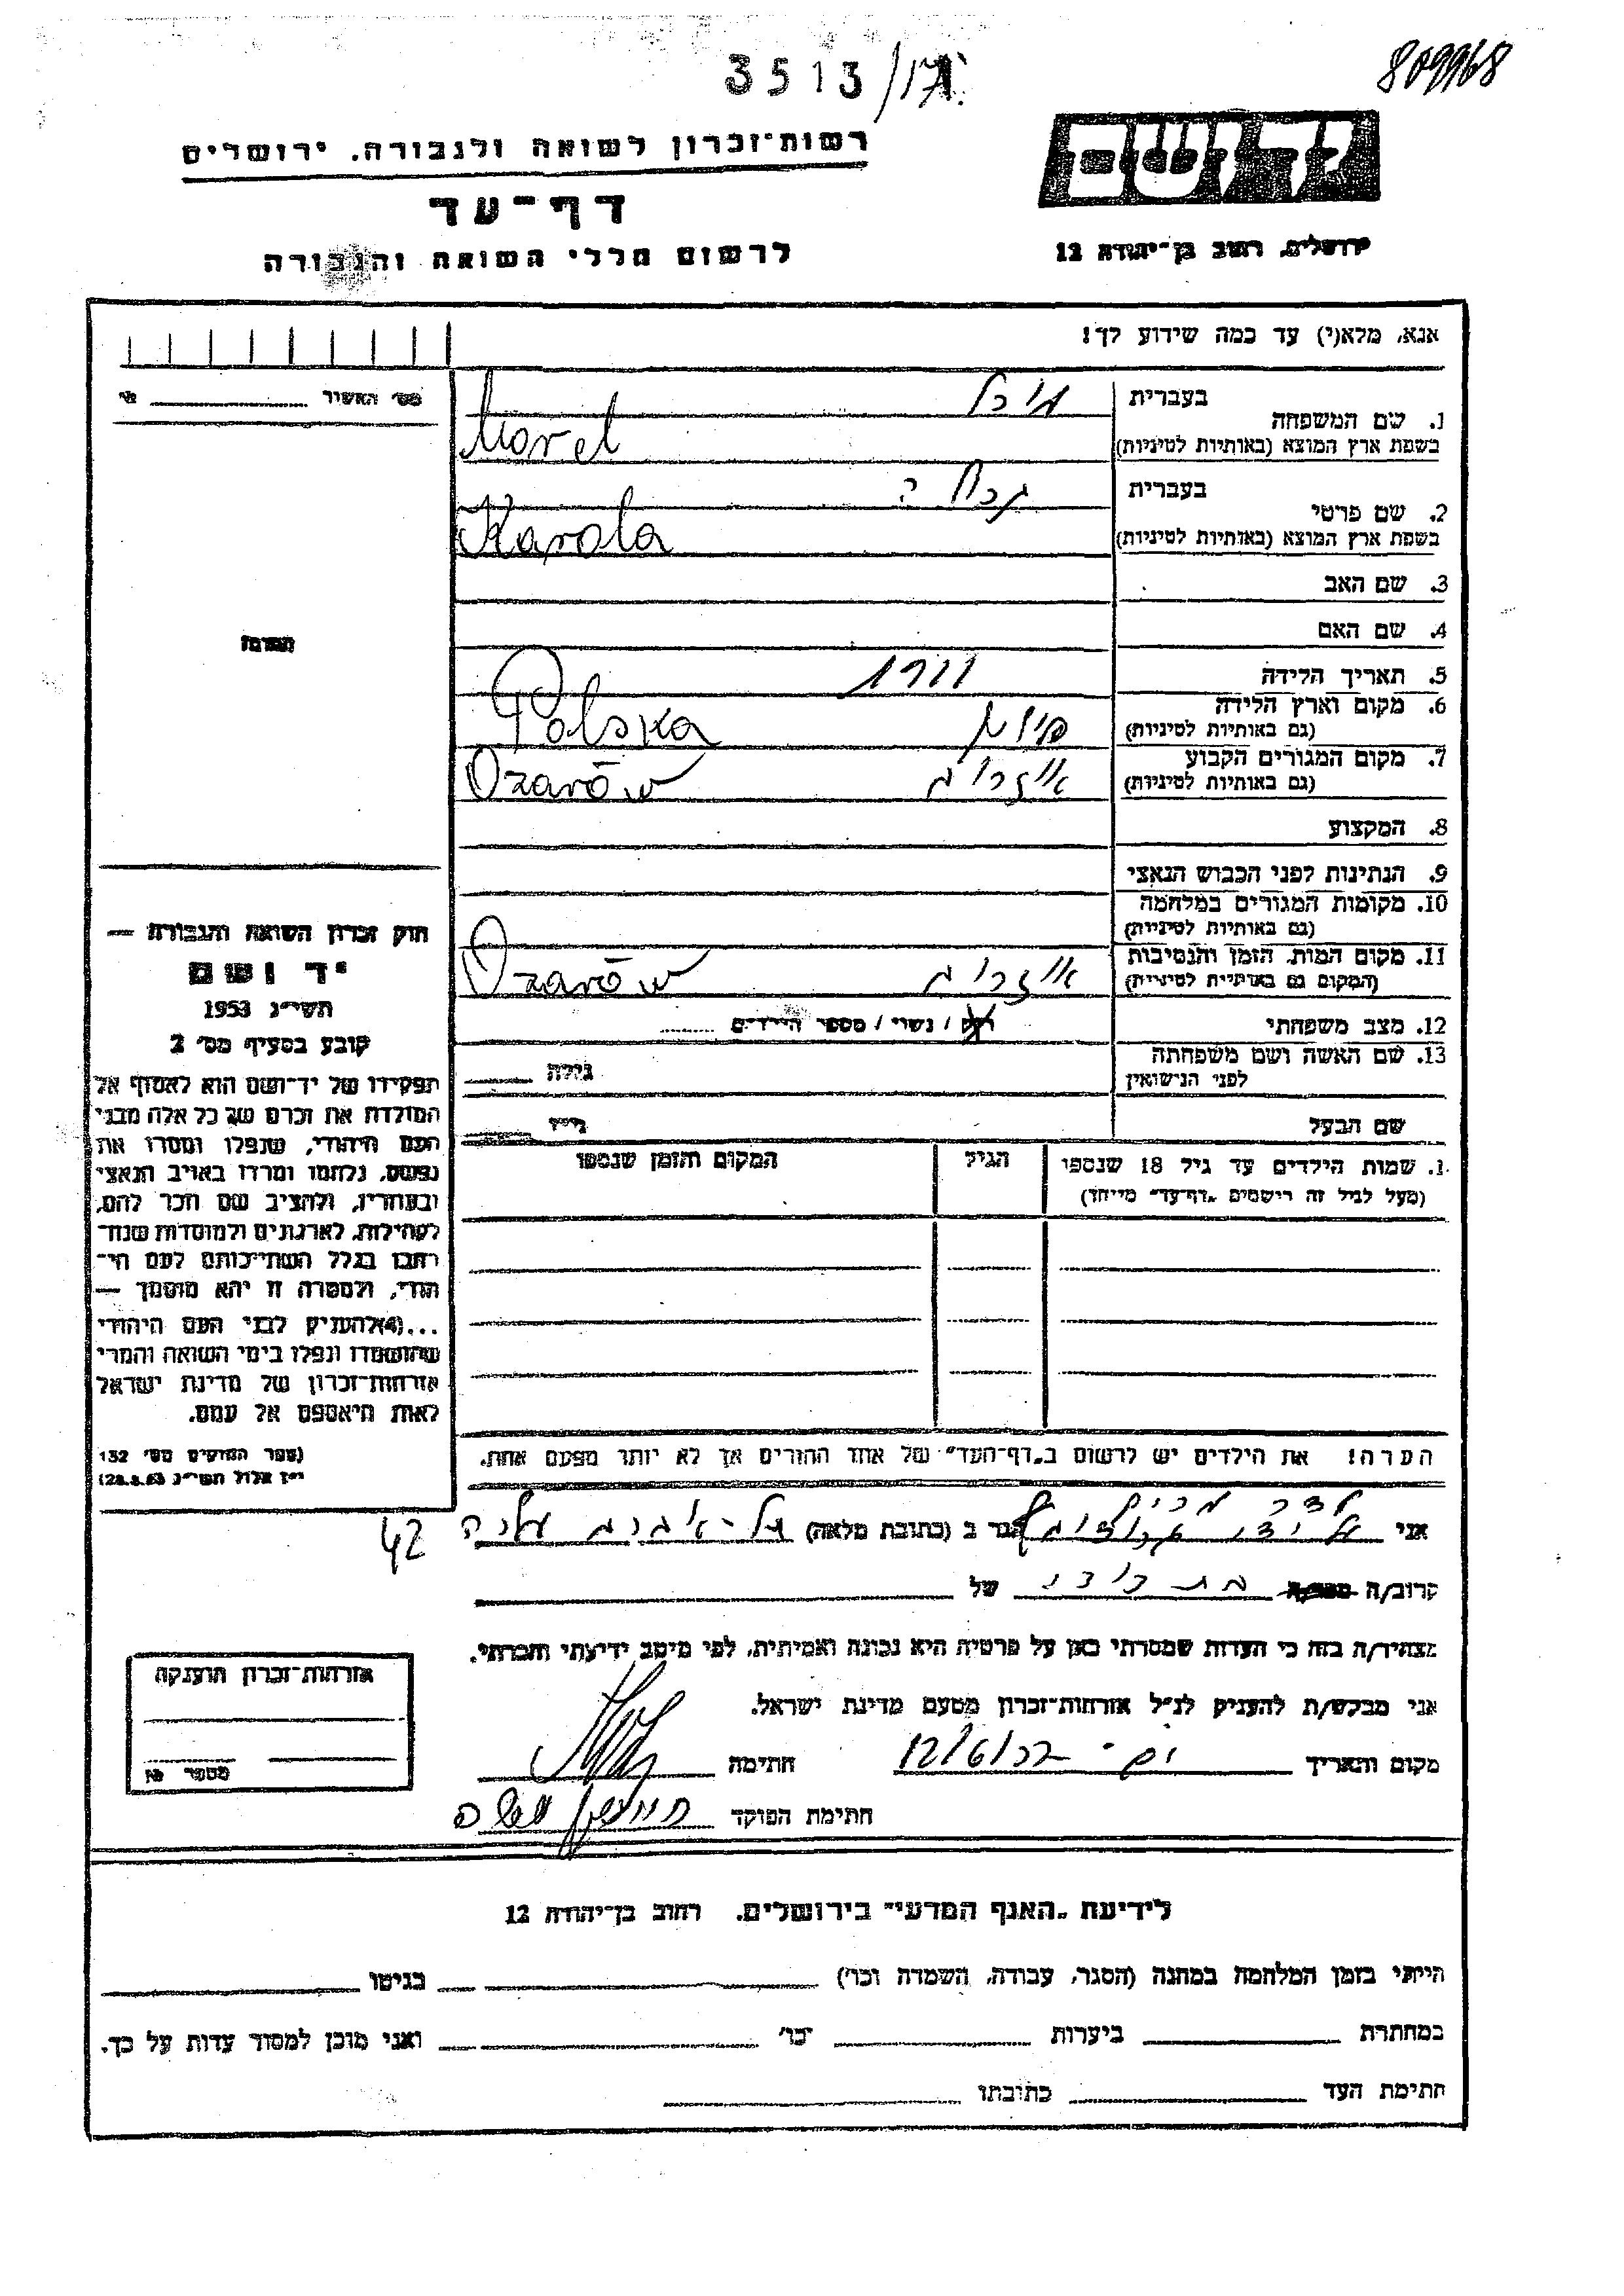 3513/17A.
809968
רשות־זכרון לשואה ולגבורה, ירושלים
יד ושם
דף־עד
לרשום חללי השואה והגבורה
ירושלים, רחוב בן־יהודה 12
אנא, מלא(י) עד כמה שידוע לך!
מס' האשיר
1. שם המשפחה
בעברית
בשפת ארץ המוצא (באותיות לטיניות)
Morel
2. שם פרטי
בעברית
בשפת ארץ המוצא (באותיות לטיניות)
Karola
3. שם האב
4. שם האם
5. תאריך הלידה
6. מקום וארץ הלידה
(גם באותיות לטיניות)
פולין Polska
7. מקום המגורים הקבוע
(גם באותיות לטיניות)
Ozarów
8. המקצוע
9. הנתינות לפני הכבוש הנאצי
10. מקומות המגורים במלחמה
(גם באותיות לטיניות)
11. מקום המות, הזמן והנסיבות
(המקום גם באותיות לטיניות)
Ozarów
12. מצב משפחתי
רווק / נשוי / מספר הילדים
13. שם האשה ושם משפחתה
לפני הנישואין
גילה
שם הבעל
גילו
שמות הילדים עד גיל 18 שנספו
(מעל לגיל זה רישמים "דף־עד" מייחד)
הגיל
המקום והזמן שנספו
הערה! את הילדים יש לרשום ב"דף־העד" של אחד ההורים אך לא יותר מפעם אחת.
חוק זכרון השואה והגבורה —
יד ושם
תשי"ג 1953
קובע בסעיף מס' 2
תפקידו של יד־ושם הוא לאסוף אל
המולדת את זכרם של כל אלה מבני
העם היהודי, שנפלו ומסרו את
נפשם, נלחמו ומרדו באויב הנאצי
ובעוזריו, ולהציב שם וזכר להם,
לקהילות, לארגונים ולמוסדות שנח־
רבו בגלל השתייכותם לעם הי־
הודי, ולמטרה זו יהא מוסמך —
...(4)להעניק לבני העם היהודי
שהושמדו ונפלו בימי השואה והמרי
אזרחות־זכרון של מדינת ישראל
לאות היאספם אל עמם.
(ספר החוקים מס' 132
י"ז אלול תשי"ג 28.8.53)
אני
הגר ב (כתובת מלאה)
תל-אביב עליה
42
קרוב/ה
בת דודו
של
מצהיר/ה בזה כי העדות שמסרתי כאן על פרטיה היא נכונה ואמיתית, לפי מיטב ידיעתי והכרתי.
אני מבקש/ת להעניק לנ"ל אזרחות־זכרון מטעם מדינת ישראל.
מקום ותאריך
חתימה
חתימת הפוקד
אזרחות־זכרון הוענקה
מספר №
לידיעת "האגף המדעי" בירושלים. רחוב בן־יהודה 12
הייתי בזמן המלחמה במחנה (הסגר, עבודה, השמדה וכו')
בגיטו
במחתרת
ביערות
וכו'
ואני מוכן למסור עדות על כך.
חתימת העד
כתובתו